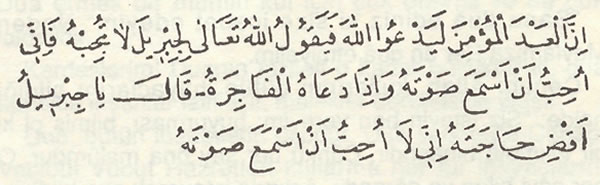 اِنَّ الْعَبْدَ الْمُؤْمِنَ لَيَدْعُوا اللّٰهَ فَيَقُولُ اللّٰهُ تَعَالٰى لِجِبْرِيلَ لَا تُجِبْهُ فَاِنّٖى
اُحِبُّ اَنْ اَسْمَعَ صَوْتَهُ وَاِذَا دَعَاهُ الْفَاجِرَةُ ـ قَالَ يَا جِبْرٖيلُ
اَقْضِ حَاجَتَهُ اِنّٖى لَا اُحِبُّ اَنْ اَسْمَعَ صَوْتَهُ